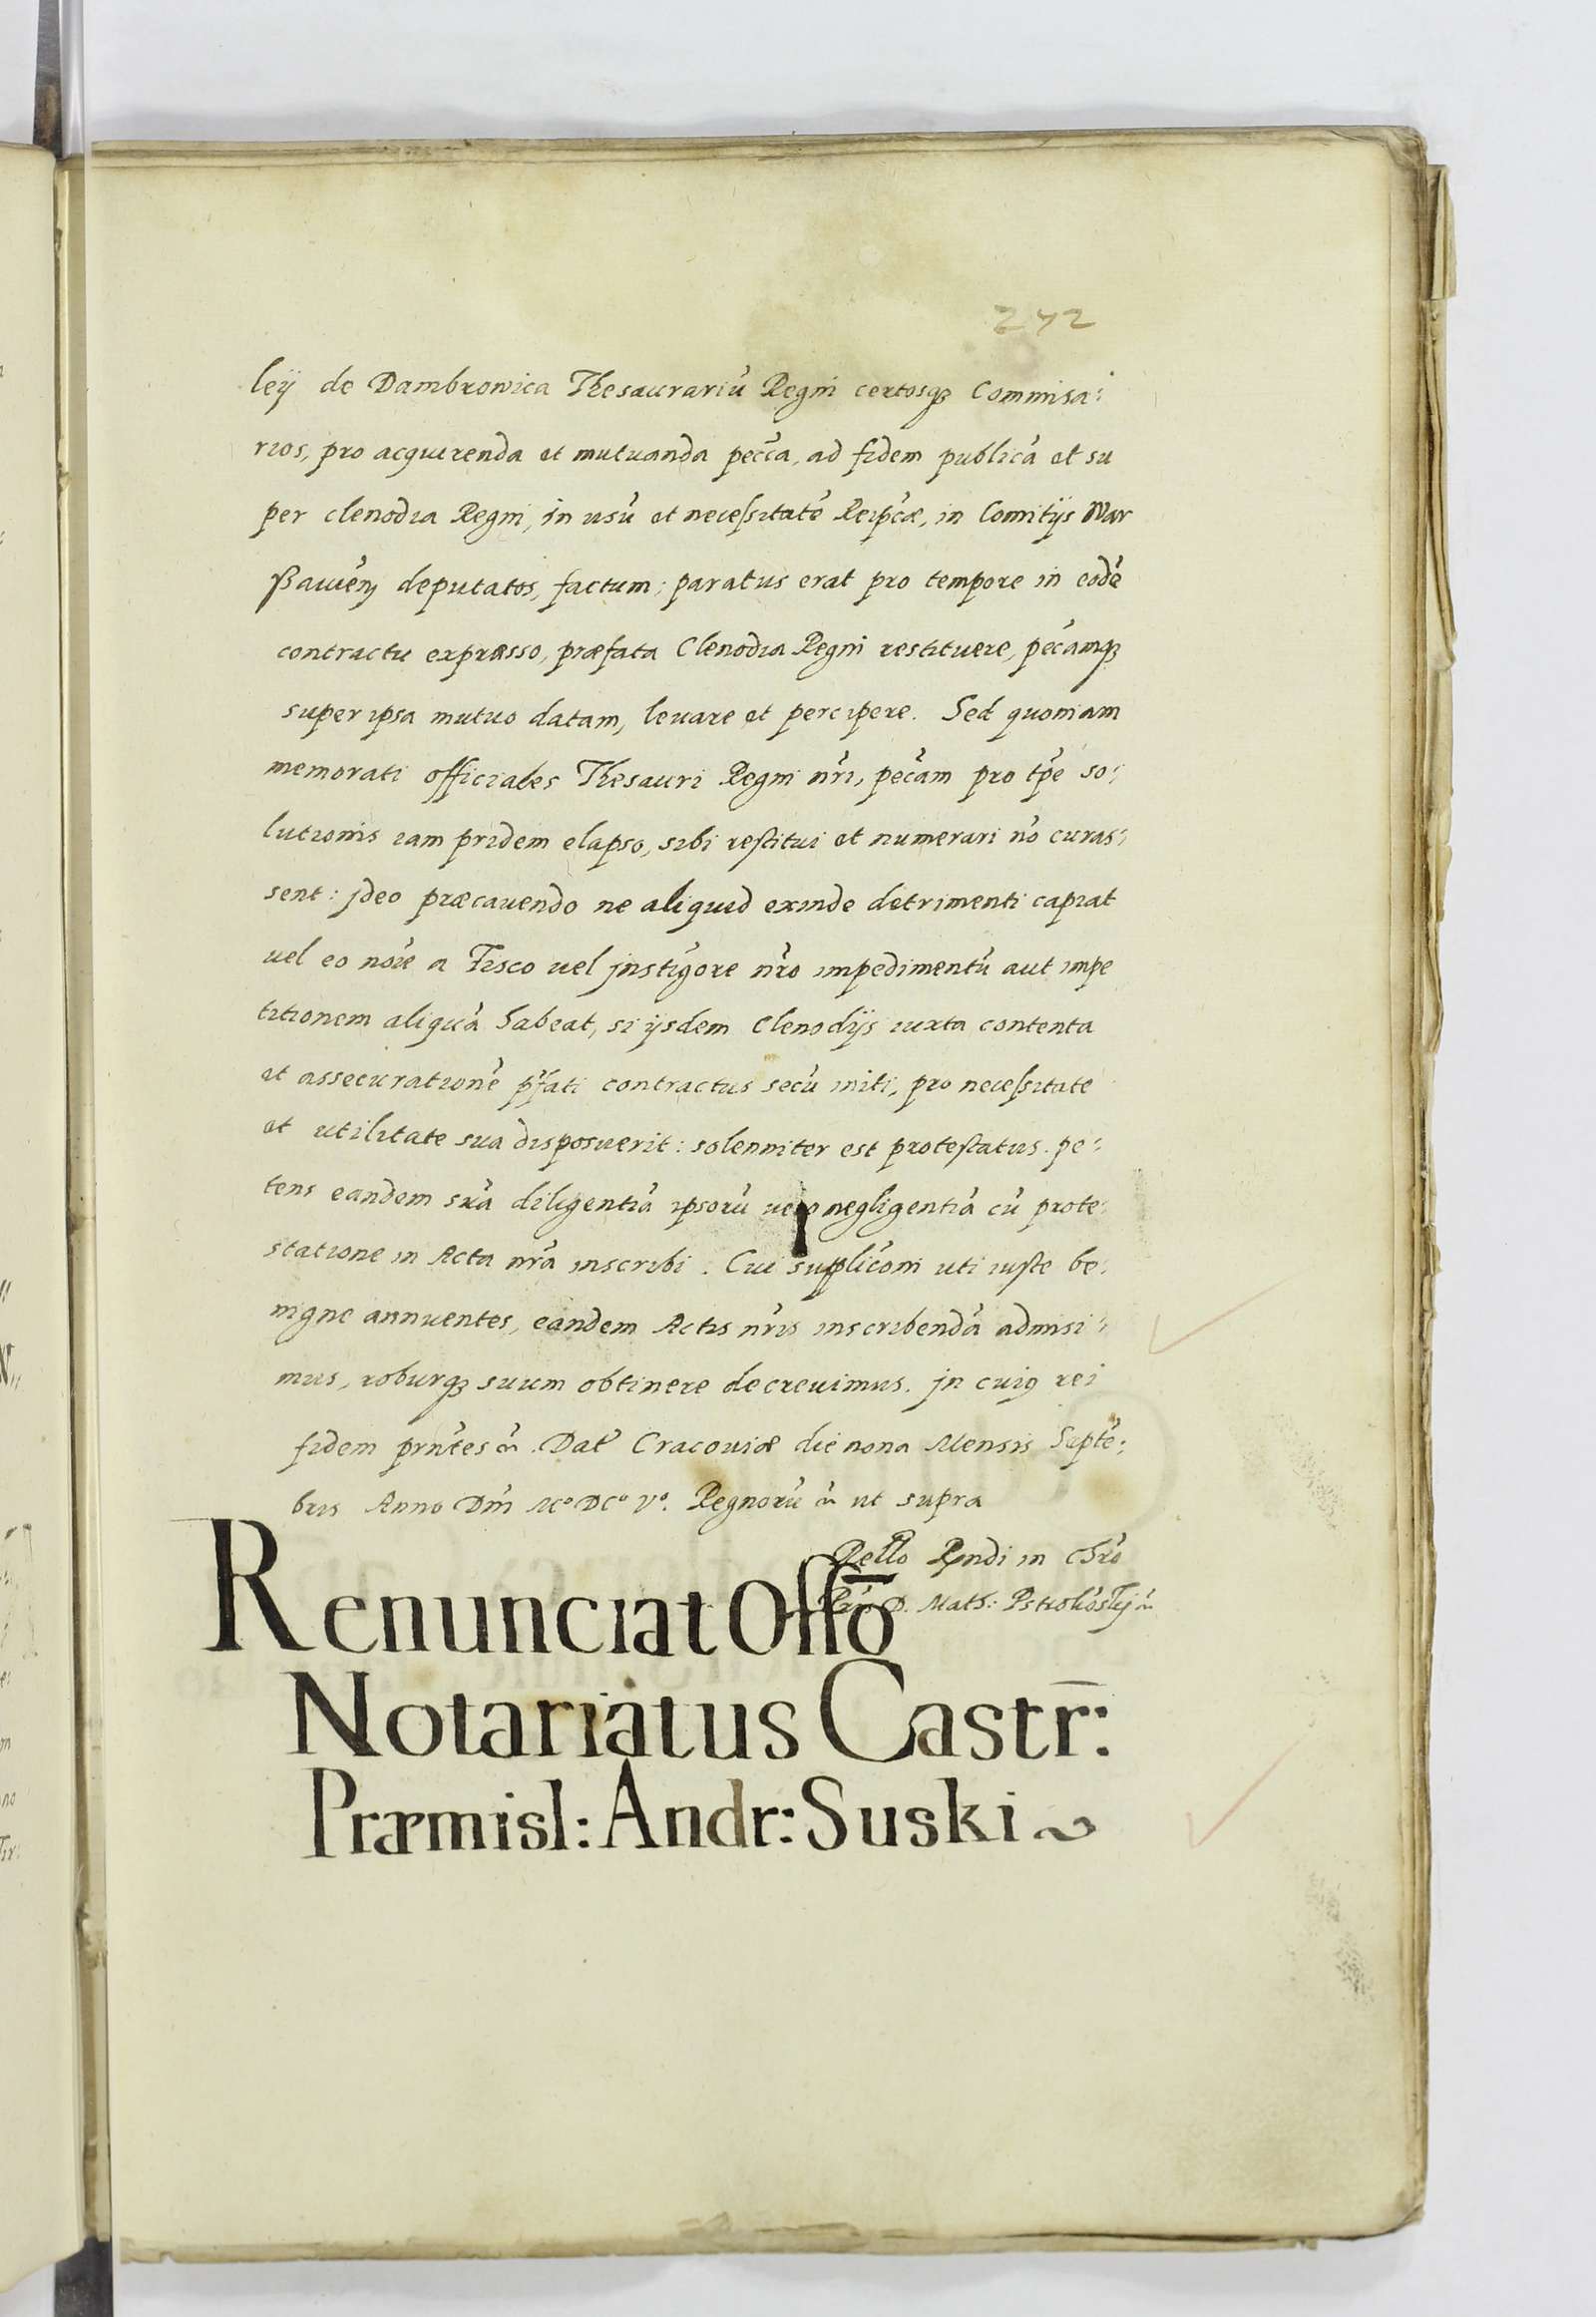 242
leÿ de Dambrowica Thesaurariū Regni certosq̃ Commisa:
rios, pro acquirenda et mutuanda peccā, ad fidem publicā et su
per clenodia Regni, in usū et necessitatē Reipcæ, in Comitijs War
ßauień deputatos, factum; paratus erat pro tempore in eodē
contractu expræsso, præfata Clenodia Regni restituere, pecāmq̃
super ipsa mutuo datam, leuare et percipere. Sed quoniam
memorati officiales Thesauri Regni nr̄i, pecām pro tp̄e so:
lutionis iam pridem elapso, sibi restitui et numerari nō curas:
sent: jdeo præcauendo ne aliquid exinde detrimenti capiat
uel eo noīe a Fisco uel jnstigōre nr̄o impedimentū aut impe
titionem aliquā habeat, si ijsdem Clenodijs iuxta contenta
et assecurationē pr̄fati contractus secū initi, pro necessitate
et utilitate sua disposuerit: solenniter est protestatus. pe:
tens eandem suā diligentiā ipsorū uero negligentiā cū prote:
statione in Acta nr̄a inscribi. Cui supplicōni uti iuste be:
nigne annuentes, eandem Actis nr̄is inscribendā admisi:
mus, roburq̃ suum obtinere decreuimus. jn cuiꝯ rei
fidem prn̄tes etc̄. Dat̄ Cracouiæ die nona Mensis Septē:
bris Anno Dn̄i Mº DCº Vº. Regnorū etc̄ ut supra
Rello Rndi in Chr̄o
D. Math:
Renunciat Offō
Notariatus Castr̄:
Præmisl: Andr: Suski